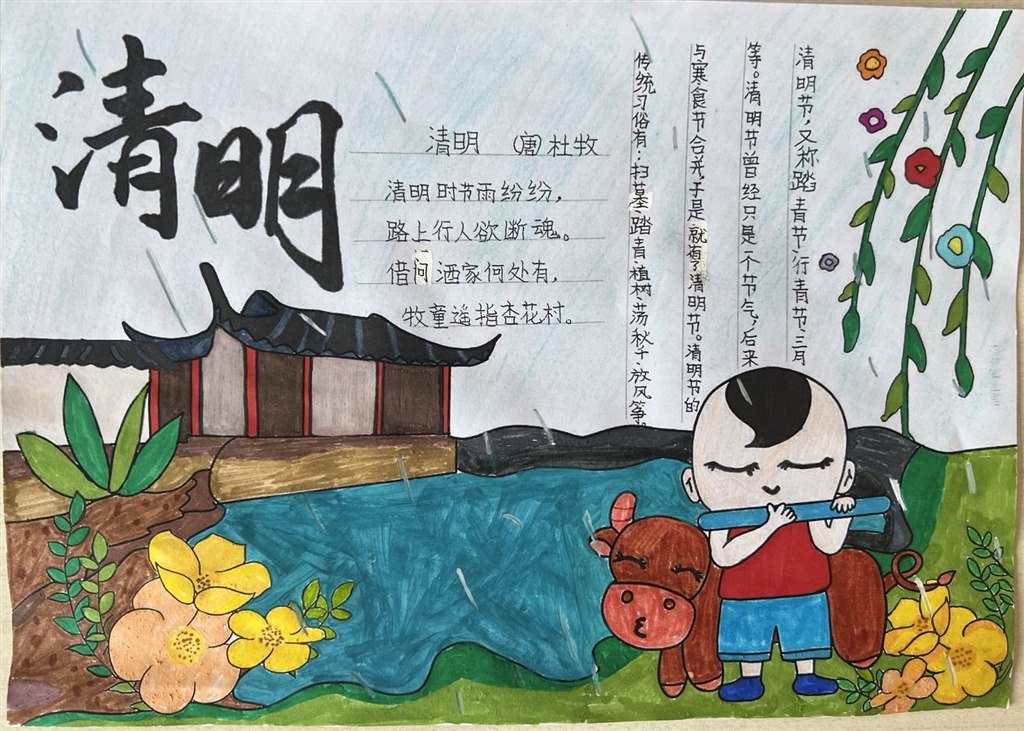 清明
清明 (唐)杜牧
清明时节雨纷纷,
路上行人欲断魂。
借问酒家何处有,
牧童遥指杏花村。
清明节,又称踏青节、行青节、三月
等。清明节曾经只是一个节气,后来
与寒食节合并,于是就有了清明节。清明节的
传统习俗有:扫墓、踏青、植树、荡秋千、放风筝。